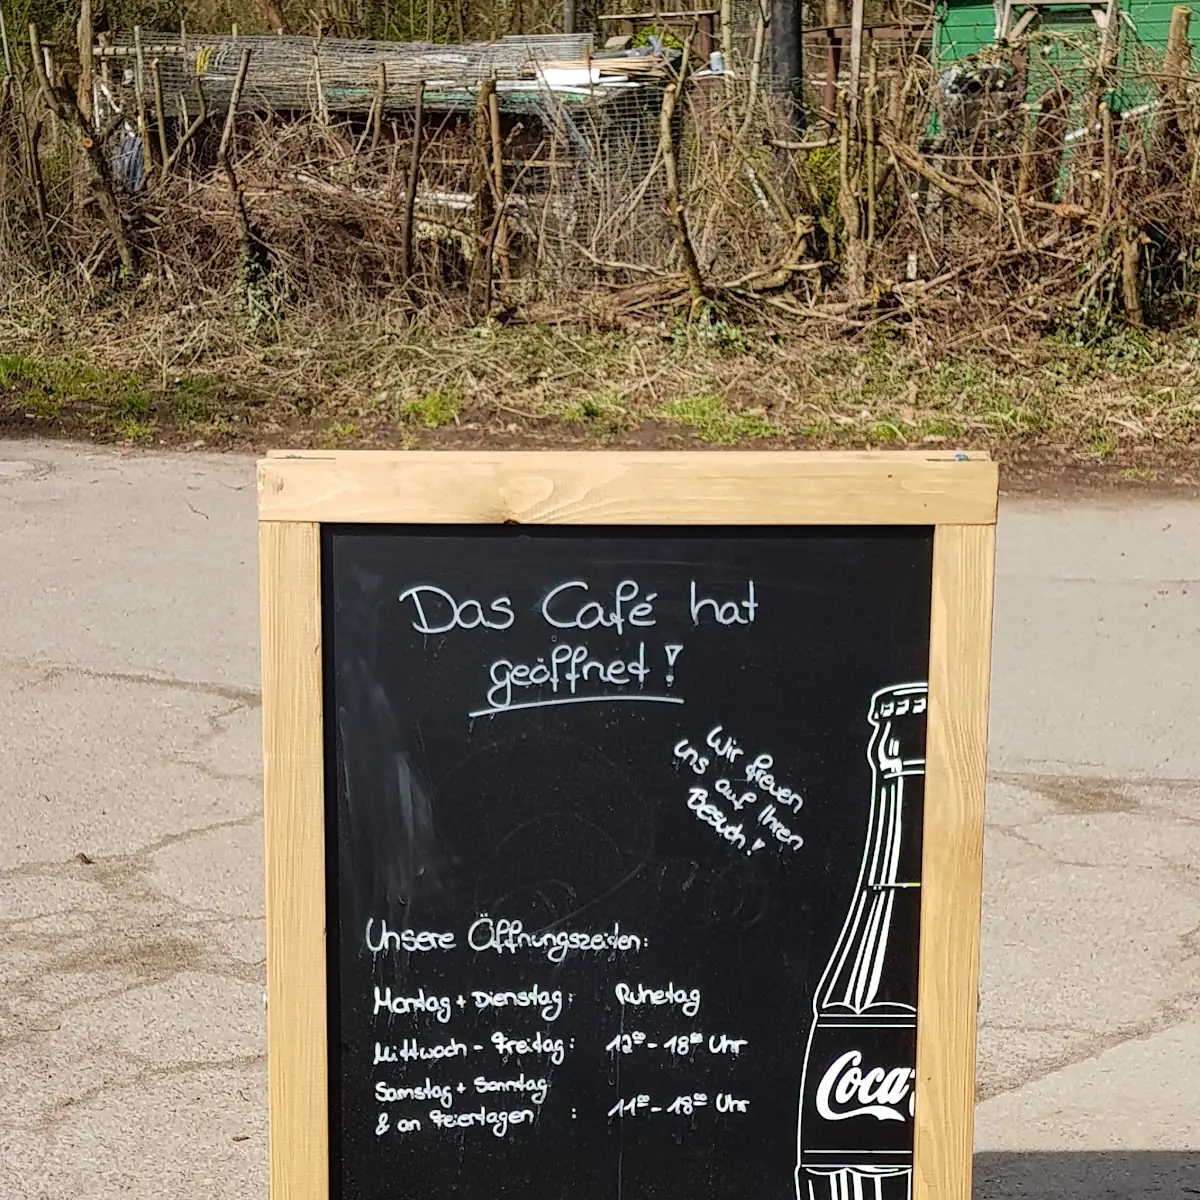 Das Café hat
geöffnet!
Wir freuen
uns auf Ihren
Besuch!
Unsere Öffnungszeiten:
Montag + Dienstag: Ruhetag
Mittwoch - Freitag: 12⁰⁰ - 18⁰⁰ Uhr
Samstag + Sonntag
& an Feiertagen : 11⁰⁰ - 18⁰⁰ Uhr
Coca